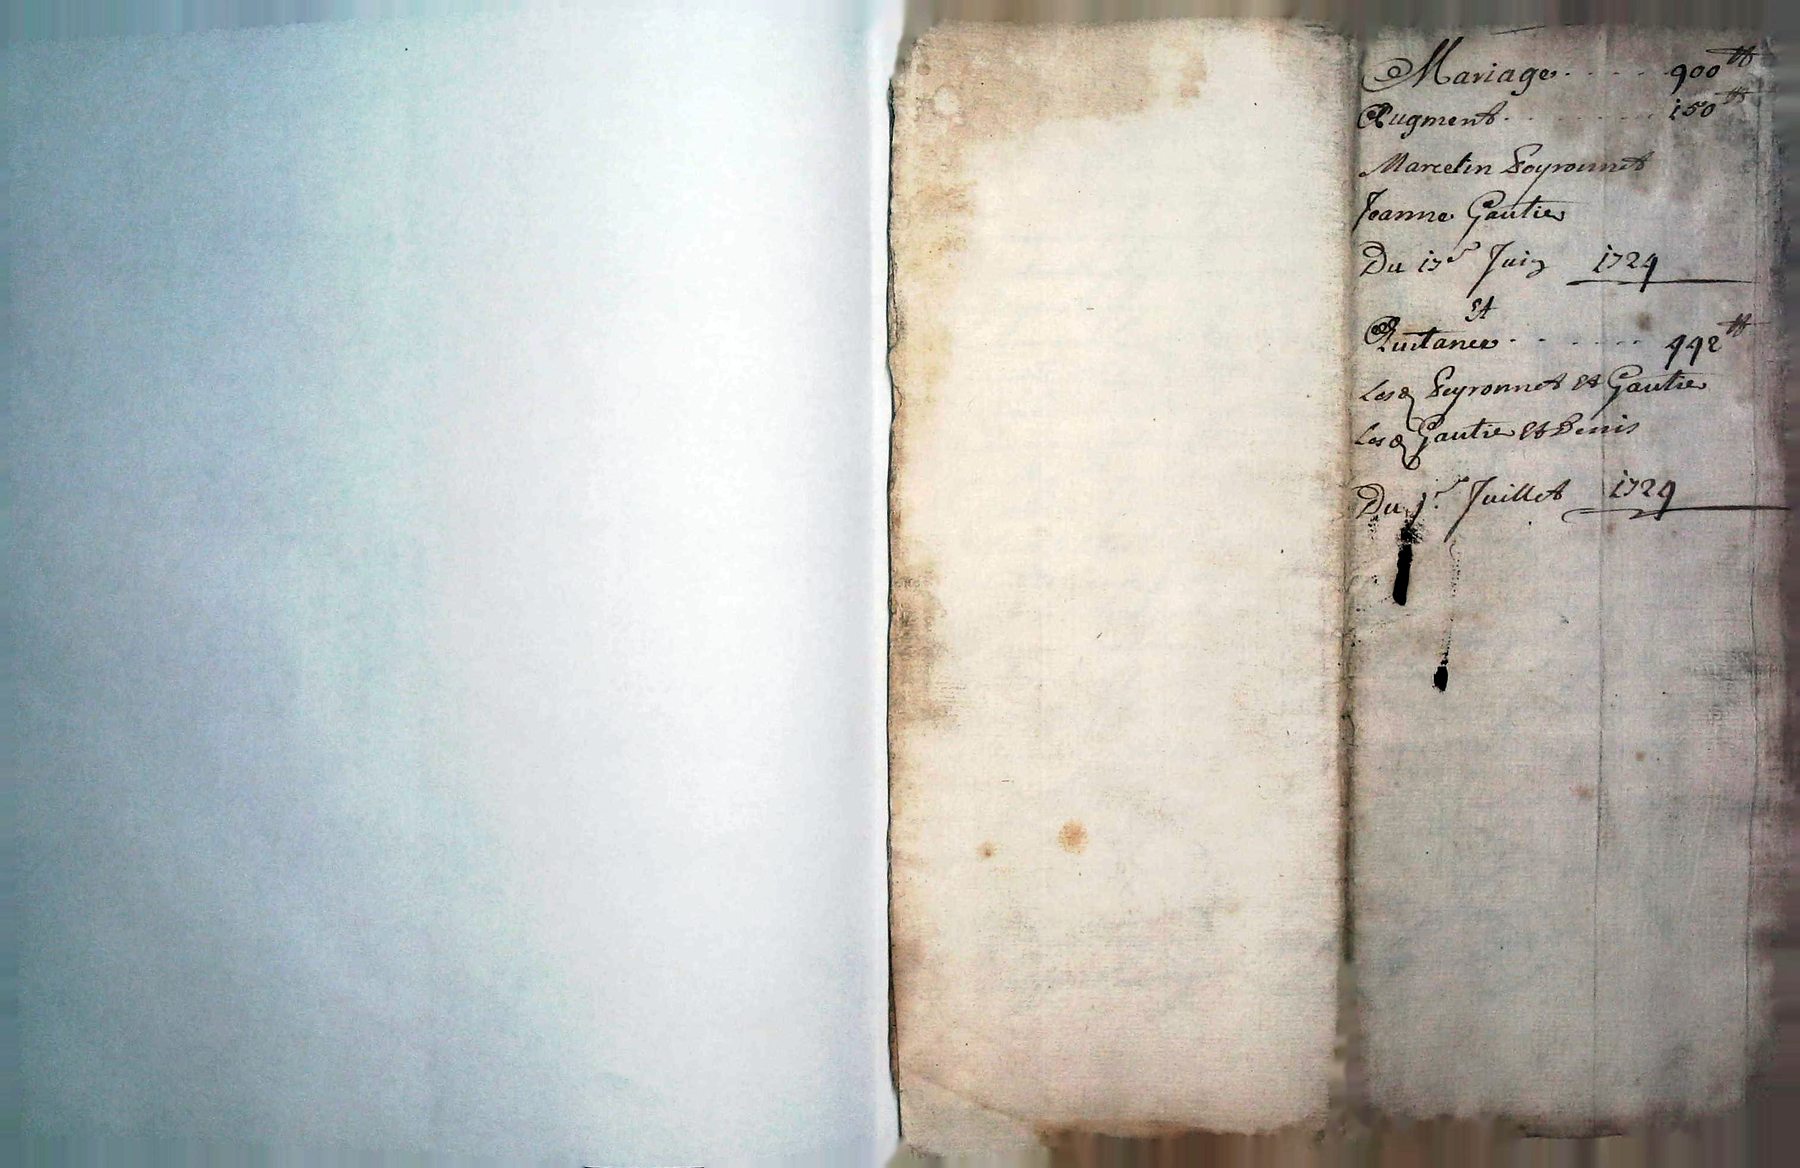 Mariage . . . . . 900 tt
Augment . . . . . . . 150 tt
Marcelin Peyronnet
Jeanne Gautier
Du 17e Juin 1724
Et
Quitance . . . . . . . 442 tt
Les Peyronnet et Gautier
Les Gautier et Denis
Du 1er Juillet 1724